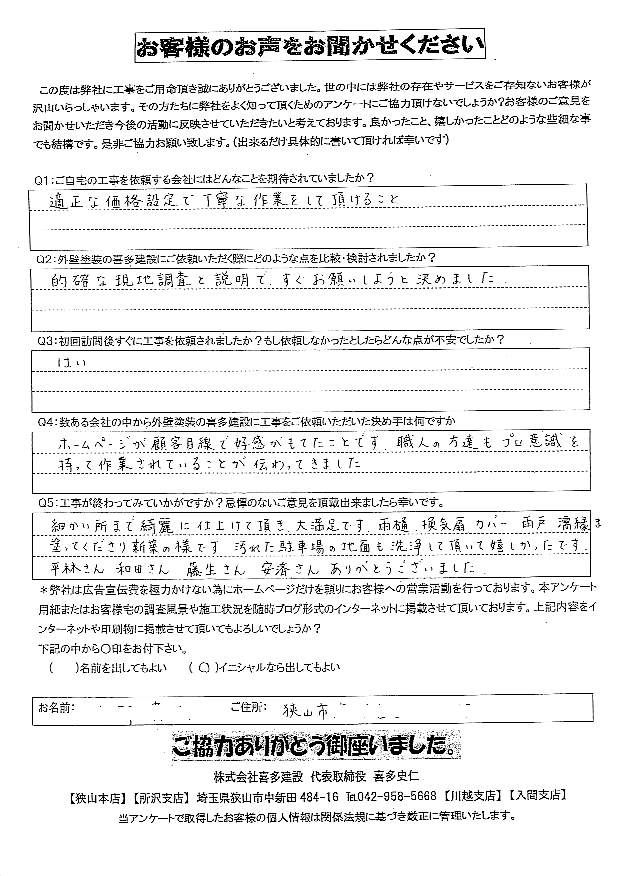 お客様のお声をお聞かせください
この度は弊社に工事をご用命頂き誠にありがとうございました。世の中には弊社の存在やサービスをご存知ないお客様が
沢山いらっしゃいます。その方たちに弊社をよく知って頂くためのアンケートにご協力頂けないでしょうか?お客様のご意見を
お聞かせいただき今後の活動に反映させていただきたいと考えております。良かったこと、嬉しかったことどのような些細な事
でも結構です。是非ご協力お願い致します。(出来るだけ具体的に書いて頂ければ幸いです)
Q1:ご自宅の工事を依頼する会社にはどんなことを期待されていましたか?
適正な価格設定で丁寧な作業をして頂けること
Q2:外壁塗装の喜多建設にご依頼いただく際にどのような点を比較・検討されましたか?
的確な現地調査と説明で、すぐお願いしようと決めました
Q3:初回訪問後すぐに工事を依頼されましたか?もし依頼しなかったとしたらどんな点が不安でしたか?
はい
Q4:数ある会社の中から外壁塗装の喜多建設に工事をご依頼いただいた決め手は何ですか
ホームページが顧客目線で好感がもてたことです 職人の方達もプロ意識を
持って作業されていることが伝わってきました
Q5:工事が終わってみていかがですか?忌憚のないご意見を頂戴出来ましたら幸いです。
細かい所まで綺麗に仕上げて頂き、大満足です 雨樋 換気扇カバー 雨戸 濡縁ま
塗ってくださり新築の様です 汚れた駐車場の地面も洗浄して頂いて嬉しかったです
平林さん 和田さん 藤生さん 安斉さん ありがとうございました
*弊社は広告宣伝費を極力かけない為にホームページだけを頼りにお客様への営業活動を行っております。本アンケート
用紙またはお客様宅の調査風景や施工状況を随時ブログ形式のインターネットに掲載させて頂いております。上記内容をイ
ンターネットや印刷物に掲載させて頂いてもよろしいでしょうか?
下記の中から〇印をお付下さい。
( )名前を出してもよい (〇)イニシャルなら出してもよい
お名前: ご住所: 狭山市
ご協力ありがとう御座いました。
株式会社喜多建設 代表取締役 喜多史仁
【狭山本店】【所沢支店】 埼玉県狭山市中新田484-16 ℡042-958-5668 【川越支店】【入間支店】
当アンケートで取得したお客様の個人情報は関係法規に基づき厳正に管理いたします。